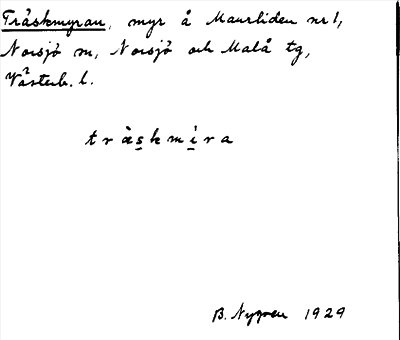 Träskmyran, myr å Maurliden nr 1,
Norsjö sn, Norsjö och Malå tg,
Västerb. l.
träskmira
B. Nygren 1929